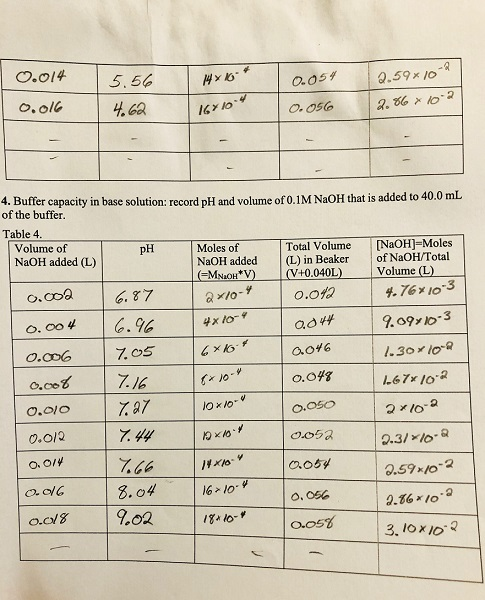 0.014 5.56 14 x 10⁻⁴ 0.054 2.59 x 10⁻²
0.016 4.62 16 x 10⁻⁴ 0.056 2.86 x 10⁻²
- - - - -
- - - - -
4. Buffer capacity in base solution: record pH and volume of 0.1M NaOH that is added to 40.0 mL
of the buffer.
Table 4.
Volume of pH Moles of Total Volume [NaOH]=Moles
NaOH added (L) NaOH added (L) in Beaker of NaOH/Total
(=MNaOH*V) (V+0.040L) Volume (L)
0.002 6.87 2 x 10⁻⁴ 0.042 4.76 x 10⁻³
0.004 6.96 4 x 10⁻⁴ 0.044 9.09 x 10⁻³
0.006 7.05 6 x 10⁻⁴ 0.046 1.30 x 10⁻²
0.008 7.16 8 x 10⁻⁴ 0.048 1.67 x 10⁻²
0.010 7.27 10 x 10⁻⁴ 0.050 2 x 10⁻²
0.012 7.44 12 x 10⁻⁴ 0.052 2.31 x 10⁻²
0.014 7.66 14 x 10⁻⁴ 0.054 2.59 x 10⁻²
0.016 8.04 16 x 10⁻⁴ 0.056 2.86 x 10⁻²
0.018 9.02 18 x 10⁻⁴ 0.058 3.10 x 10⁻²
- - - - -